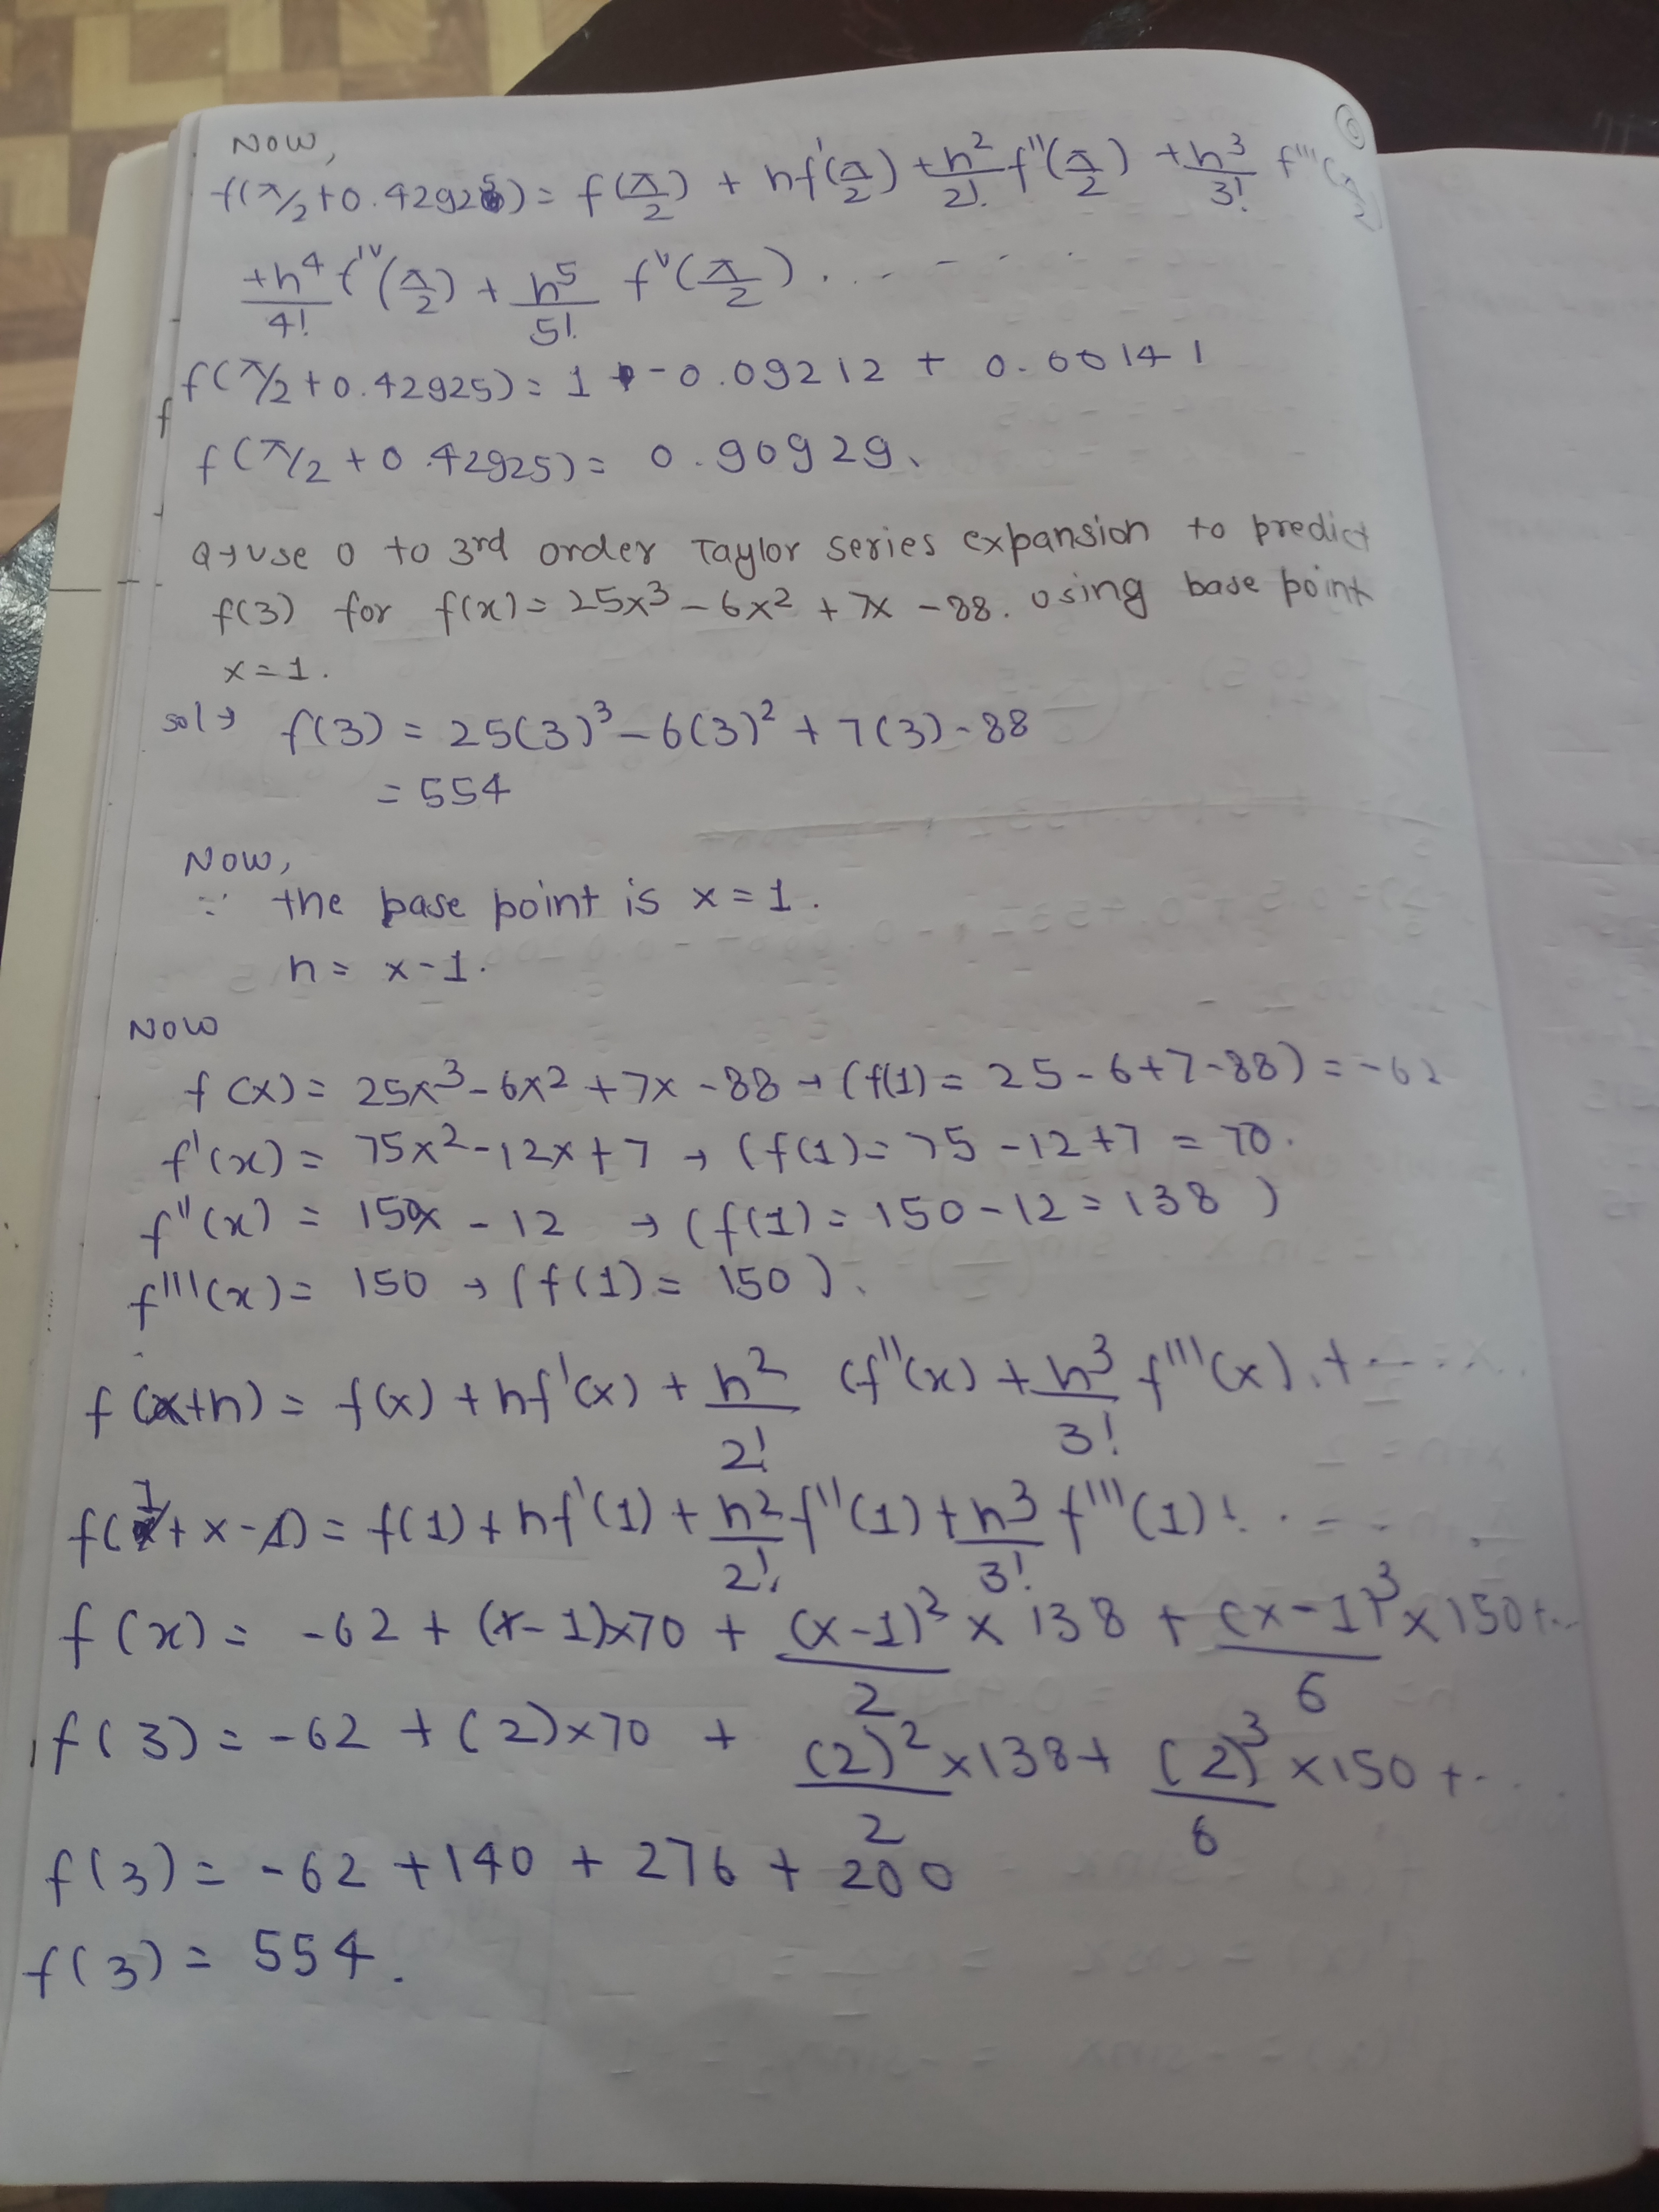 NOW,
f(π/2+0.42925) = f(π/2) + hf'(π/2) + h²/2! f''(π/2) + h³/3! f'''(π/2)
+h⁴/4! f^iv(π/2) + h⁵/5! f^v(π/2) . . - - - . .
f(π/2+0.42925) = 1 - 0.09212 + 0.00141
f
f(π/2+0.42925) = 0.90929.
Q→ Use 0 to 3rd order Taylor series expansion to predict
f(3) for f(x) = 25x³ - 6x² + 7x - 88. Using base point
x = 1.
sol→ f(3) = 25(3)³ - 6(3)² + 7(3) - 88
= 554
NOW,
∵ the base point is x = 1.
h = x-1.
NOW
f(x) = 25x³ - 6x² + 7x - 88 → (f(1) = 25 - 6+7-88) = -62
f'(x) = 75x² - 12x + 7 → (f(1) = 75 - 12 + 7 = 70.
f''(x) = 150x - 12 → (f(1) = 150 - 12 = 138 )
f'''(x) = 150 → (f(1) = 150).
f(x+h) = f(x) + hf'(x) + h²/2! (f''(x) + h³/3! f'''(x). + - - -
f(1 + x - 1) = f(1) + hf'(1) + h²/2! f''(1) + h³/3! f'''(1) ! . - - -
f(x) = -62 + (x-1)×70 + (x-1)²/2 × 138 + (x-1)³/6 × 150 + ...
f(3) = -62 + (2)×70 + (2)²/2 ×138 + (2)³/6 ×150 + ...
f(3) = -62 + 140 + 276 + 200
f(3) = 554.